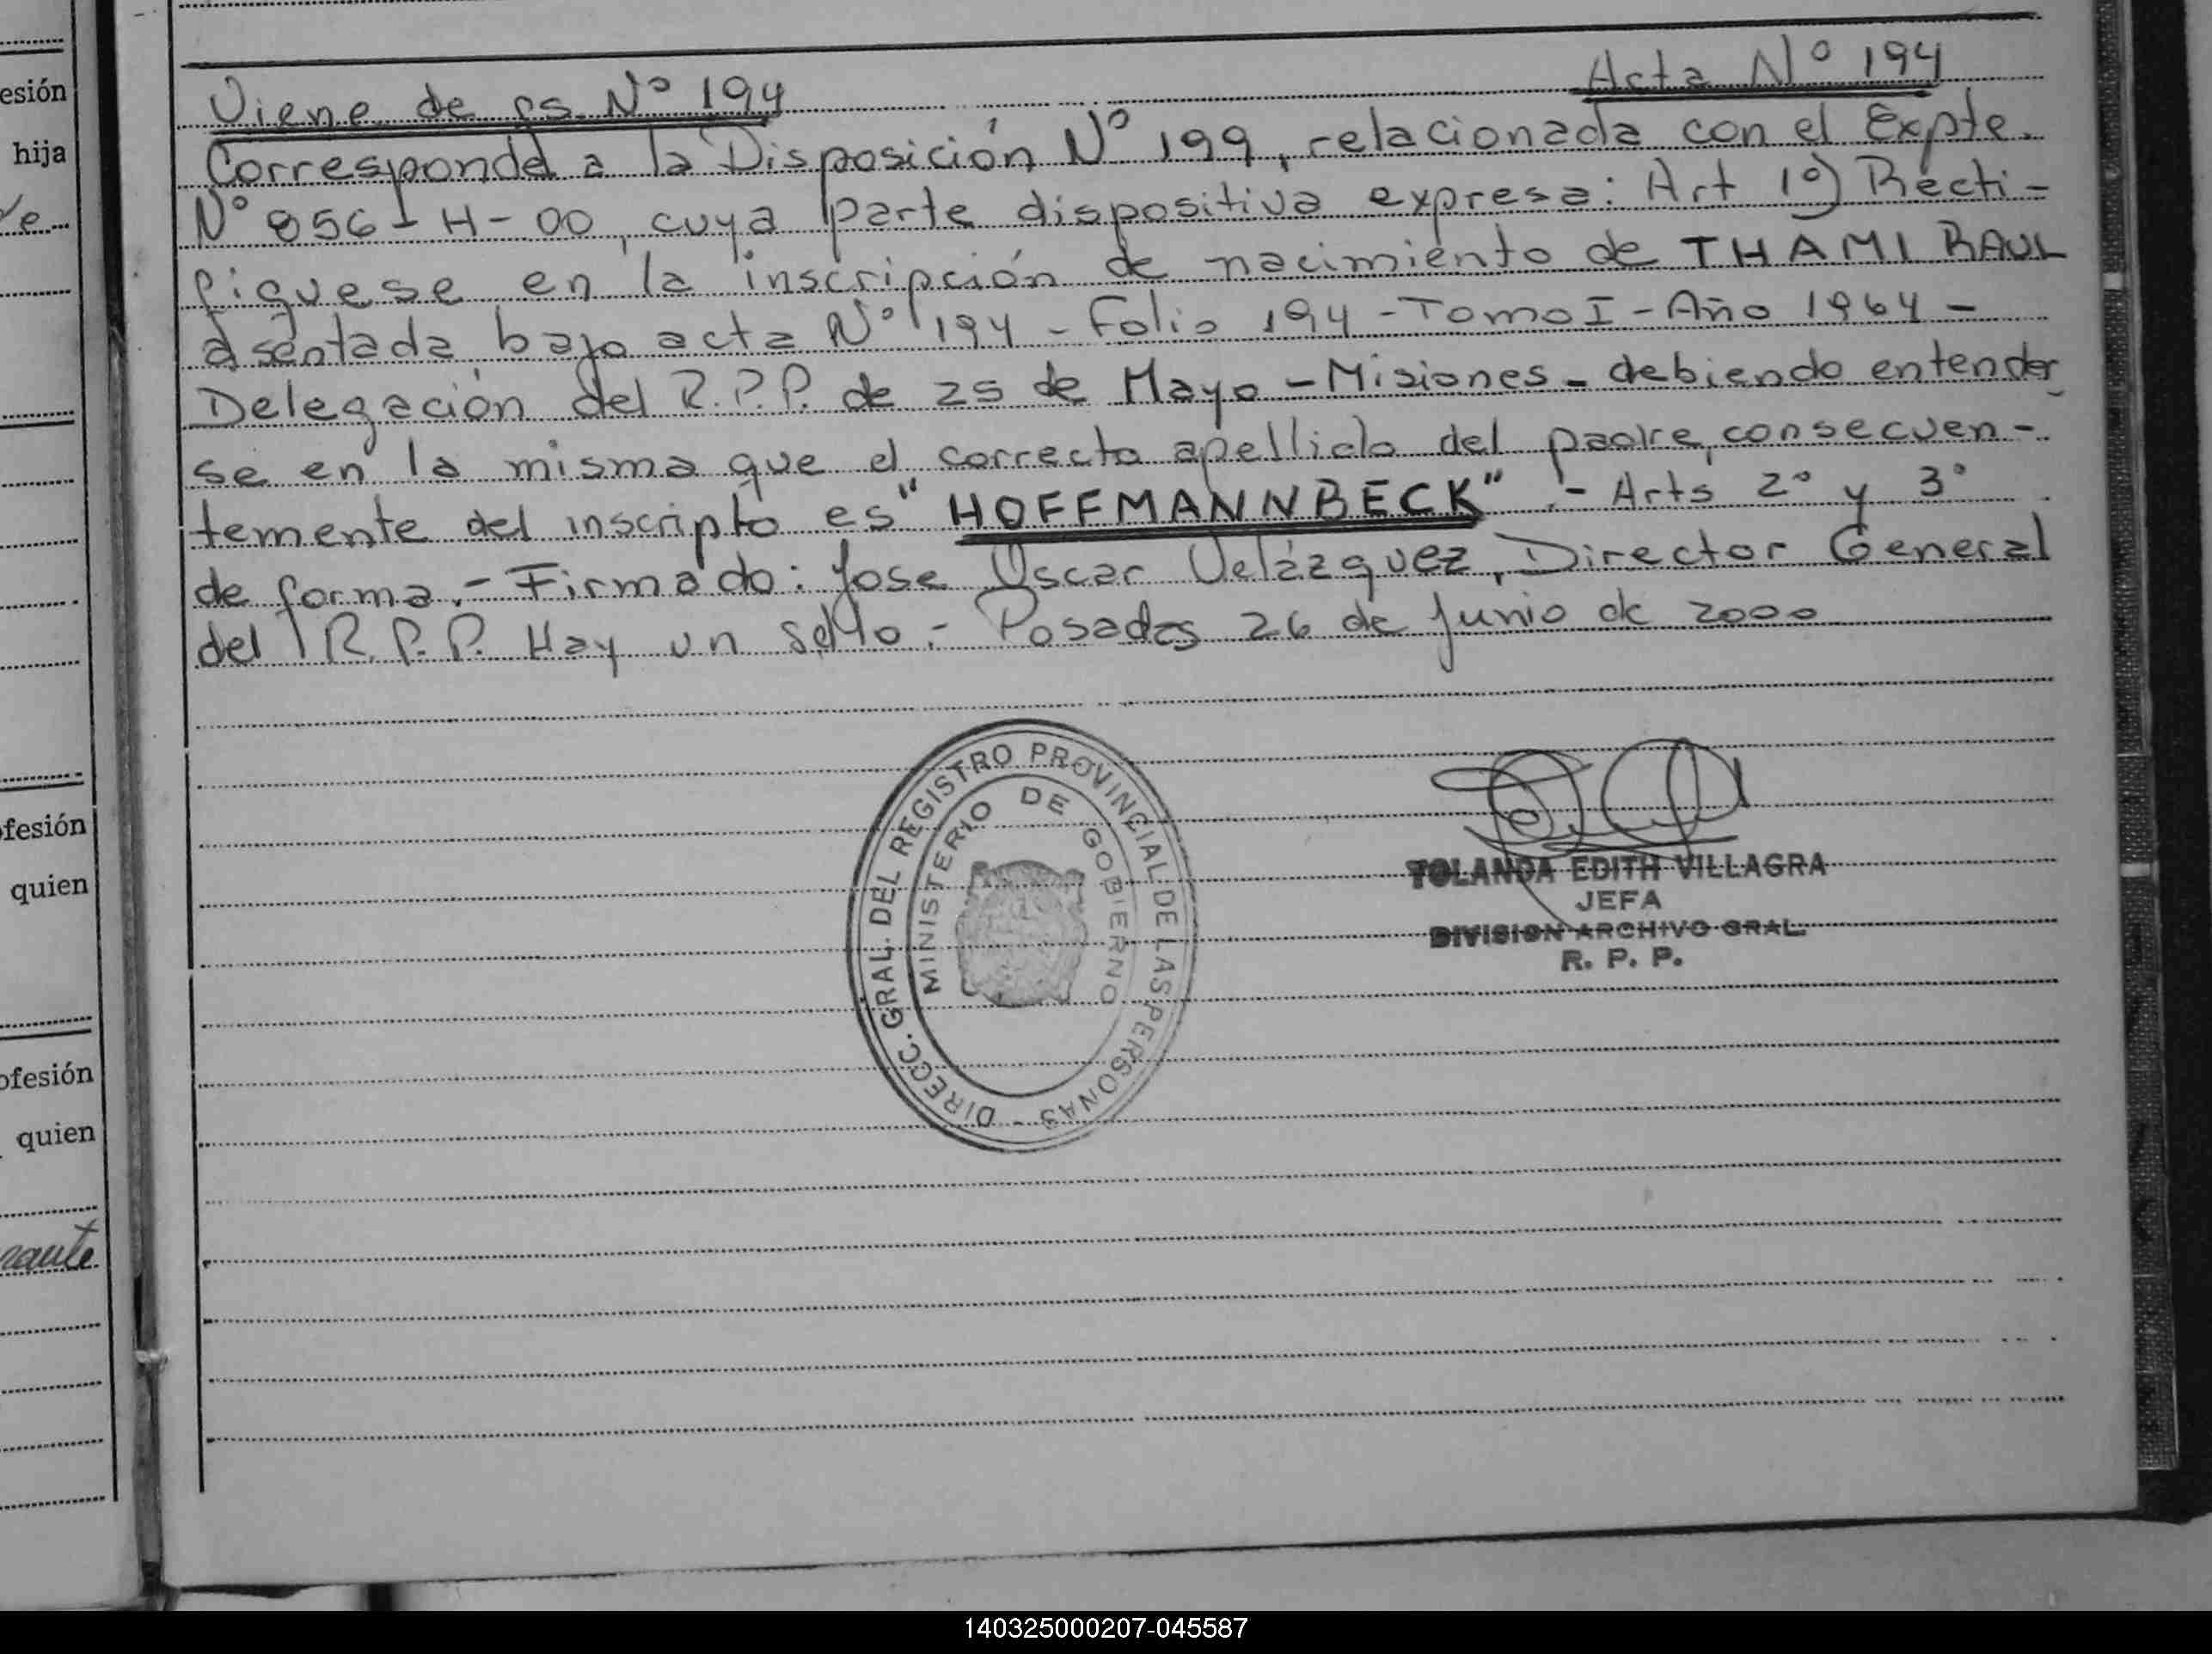 esión
hija
fesión
quien
ofesión
quien
Viene de fs. Nº 194
Acta Nº 194
Corresponde a la Disposición Nº 199, relacionada con el Expte.
Nº 856-H-00, cuya parte dispositiva expresa: Art 1º) Recti-
fiquese en la inscripción de nacimiento de THAMI RAUL
asentada bajo acta Nº 194 - Folio 194 - Tomo I - Año 1964 -
Delegación del R.P.P. de 25 de Mayo - Misiones - debiendo entender
se en la misma que el correcto apellido del padre, consecuen-
temente del inscripto es "HOFFMANNBECK".- Arts 2º y 3º
de forma.- Firmado: Jose Oscar Velázquez, Director General
del R.P.P. Hay un sello.- Posadas 26 de Junio de 2000
DIRECC. GRAL. DEL REGISTRO PROVINCIAL DE LAS PERSONAS -
MINISTERIO DE GOBIERNO
YOLANDA EDITH VILLAGRA
JEFA
DIVISION ARCHIVO GRAL.
R. P. P.
140325000207-045587